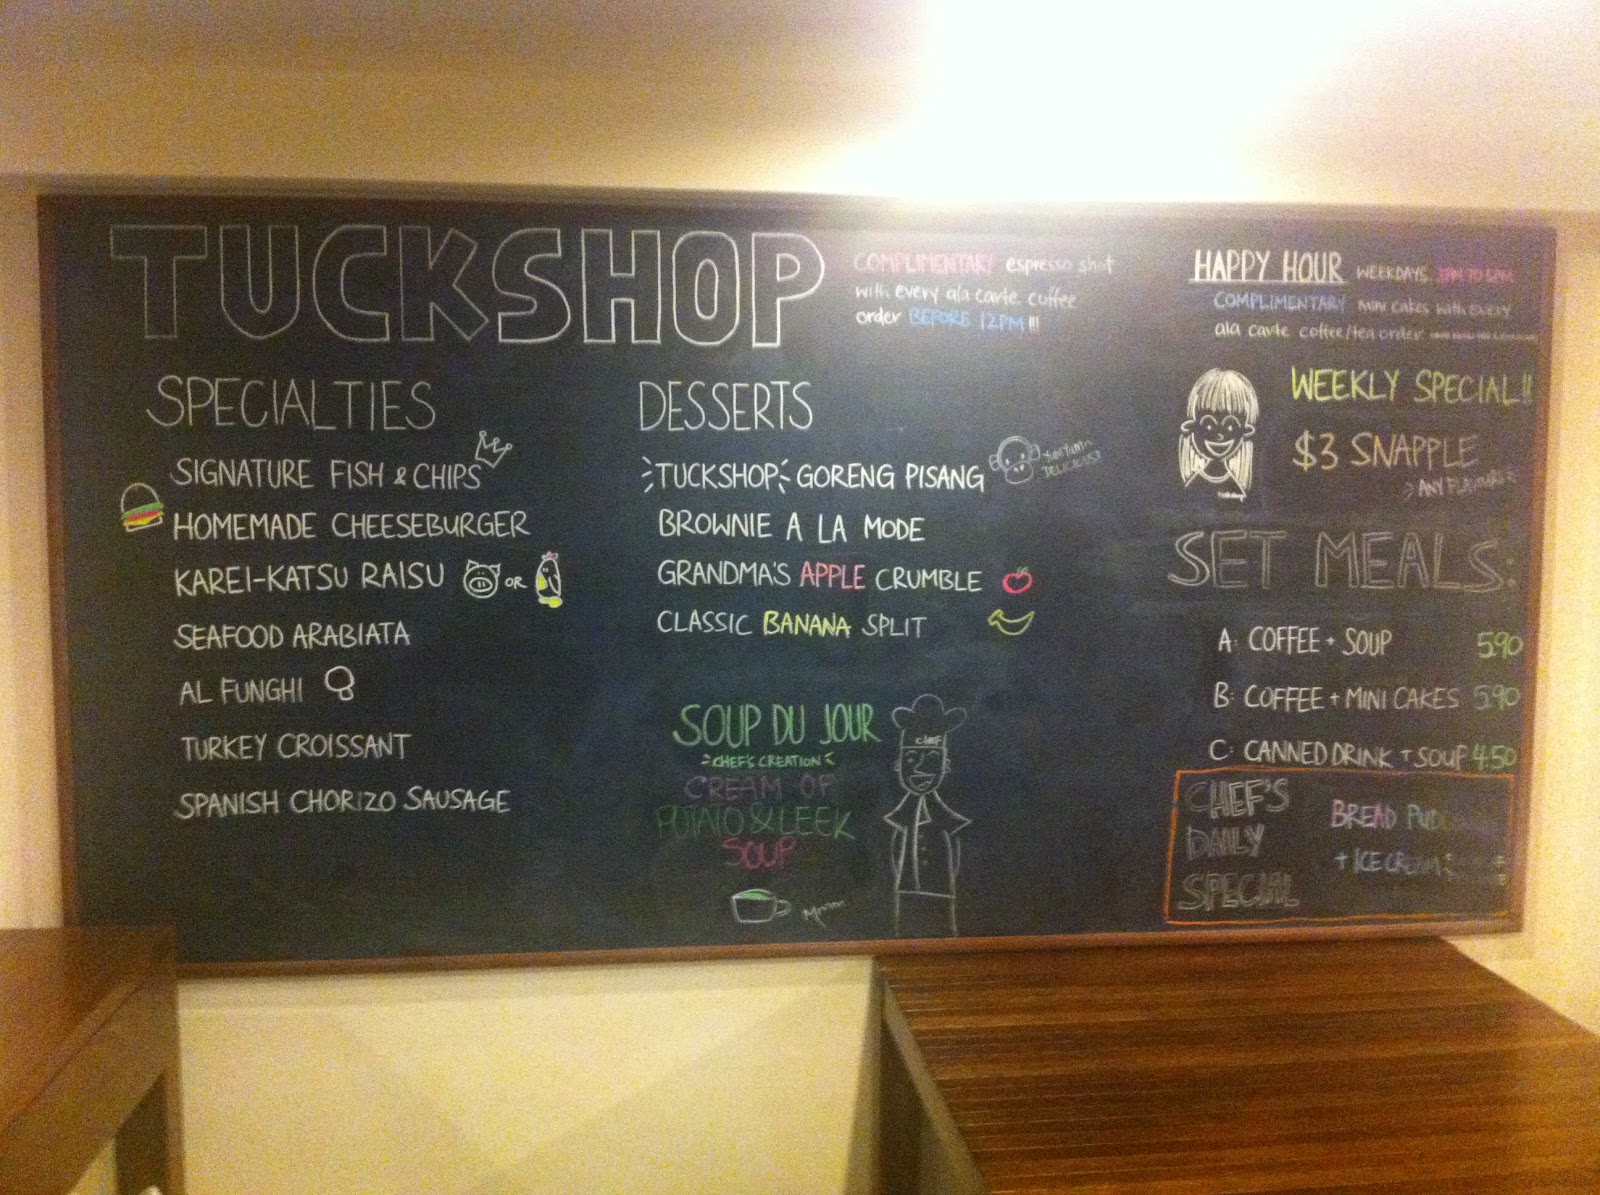 TUCKSHOP
COMPLIMENTARY espresso shot
with every ala carte coffee
order BEFORE 12PM !!!
HAPPY HOUR WEEKDAYS
COMPLIMENTARY mini cakes with every
ala carte coffee/tea order
SPECIALTIES
SIGNATURE FISH & CHIPS
HOMEMADE CHEESEBURGER
KAREI-KATSU RAISU OR
SEAFOOD ARABIATA
AL FUNGHI
TURKEY CROISSANT
SPANISH CHORIZO SAUSAGE
DESSERTS
TUCKSHOP GORENG PISANG
YumYum
DELICIOUS
BROWNIE A LA MODE
GRANDMA'S APPLE CRUMBLE
CLASSIC BANANA SPLIT
SOUP DU JOUR
CHEF'S CREATION
CREAM OF
POTATO & LEEK
SOUP
CHEF
WEEKLY SPECIAL!!
$3 SNAPPLE
ANY FLAVOUR
SET MEALS:
A: COFFEE + SOUP 5.90
B: COFFEE + MINI CAKES 5.90
C: CANNED DRINK + SOUP 4.50
CHEF'S
DAILY
SPECIAL
BREAD
+ ICE CREAM